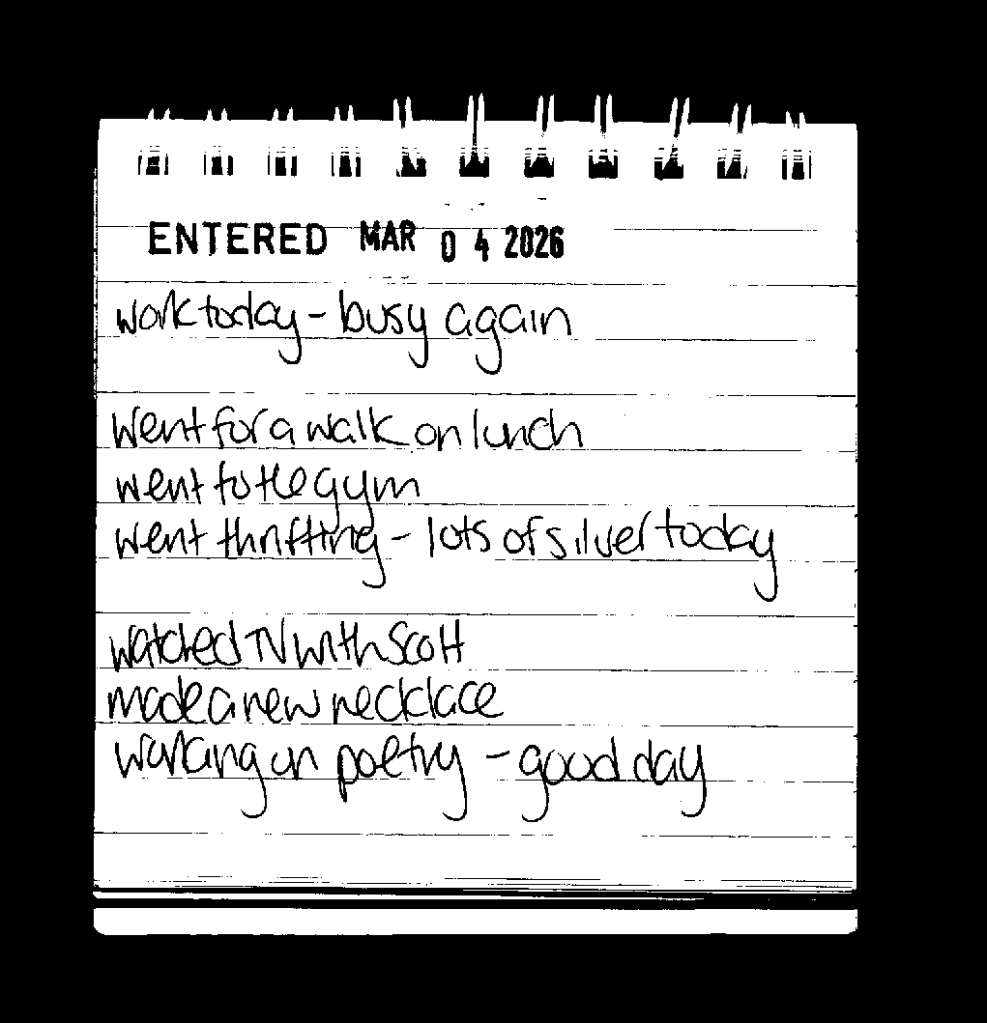 ENTERED MAR 04 2026
work today - busy again
went for a walk on lunch
went to the gym
went thrifting - lots of silver today
watched TV with Scott
made a new necklace
working on poetry - good day